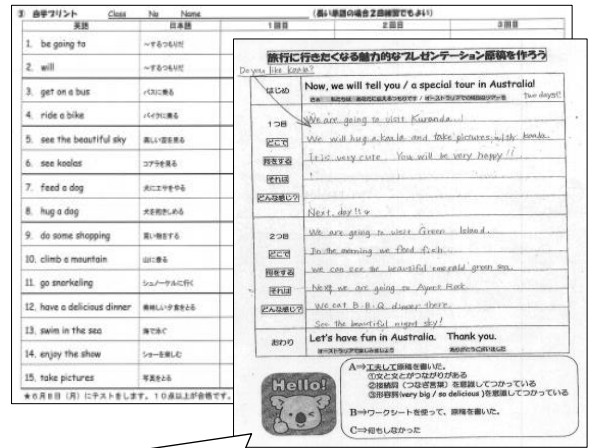 ③ 自学プリント Class No Name （長い単語の場合２回練習でもよい）
英語 日本語 1回目 2回目 3回目
1. be going to ～するつもりだ
2. will ～するつもりだ
3. get on a bus バスに乗る
4. ride a bike バイクに乗る
5. see the beautiful sky 美しい空を見る
6. see koalas コアラを見る
7. feed a dog 犬にエサをやる
8. hug a dog 犬を抱きしめる
9. do some shopping 買い物をする
10. climb a mountain 山に登る
11. go snorkeling シュノーケルに行く
12. have a delicious dinner 美味しい夕食をとる
13. swim in the sea 海で泳ぐ
14. enjoy the show ショーを楽しむ
15. take pictures 写真をとる
★6月8日（月）にテストをします。10点以上が合格です。
旅行に行きたくなる魅力的なプレゼンテーション原稿を作ろう
Do you like koala?
はじめ Now, we will tell you / a special tour in Australia!
two days!!
1つ目 We are going to visit Kuranda.
どこで We will hug a koala and take pictures with koala.
何をする It is very cute. You will be very happy!!
それは
どんな感じ?
Next day!!
2つ目 We are going to visit Green Island.
どこで In the morning we feed fish.
何をする We can see the beautiful emerald green sea.
それは Next we are going to Ayers Rock.
どんな感じ? We eat B.B.Q dinner there.
See the beautiful night sky!
おわり Let's have fun in Australia. Thank you.
オーストラリアで楽しみましょう ありがとうございました
Hello!
A⇒工夫して原稿を書いた。
①文と文とがつながりがある
②接続詞（つなぎ言葉）を意識してつかっている
③形容詞(very big / so delicious )を意識してつかっている
B⇒ワークシートを使って、原稿を書いた。
C⇒何もしなかった